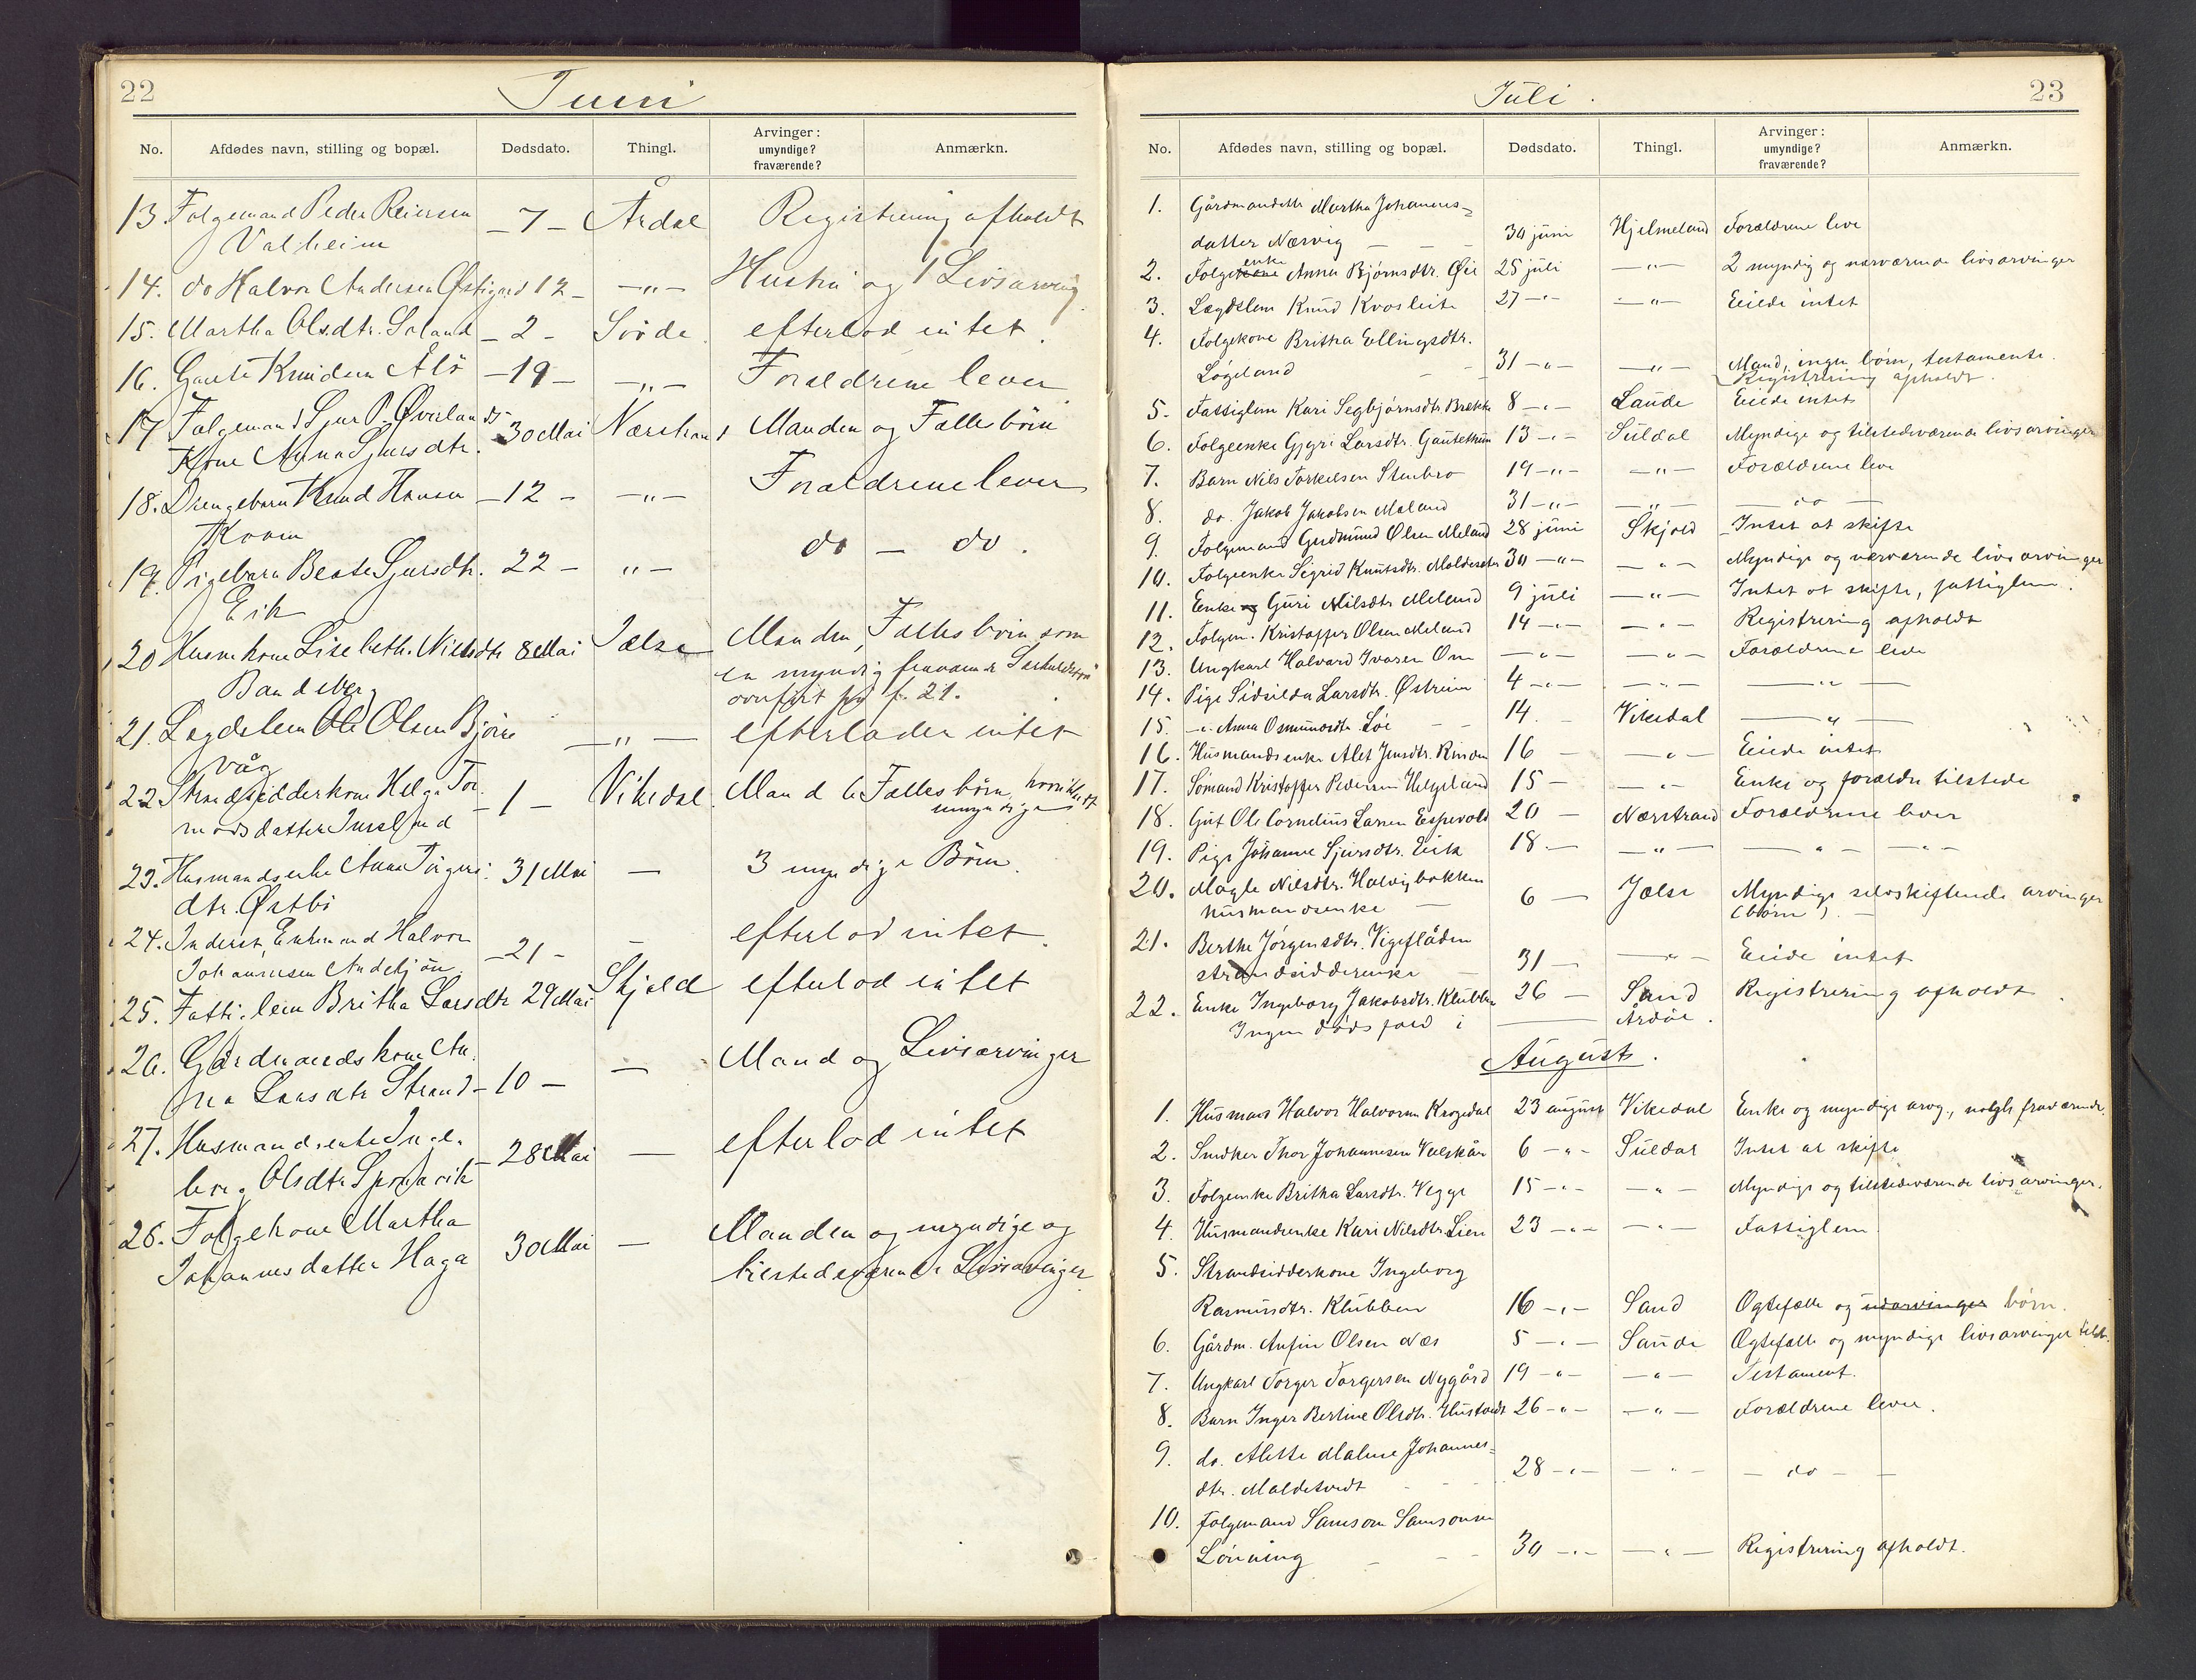 22
Juni
No. Afdødes navn, stilling og bopæl. Dødsdato. Thingl. Arvinger: umyndige? fraværende? Anmærkn.
13. Folgemand Peder Reiersen – 7 – Årdal Registrering afholdt
Valheim
14. do Halvor Andersen Østigard 12 – – " – Hustru og 1 Livsarving
15. Martha Olsdtr. Soland – 2 – Søvde efterlod intet.
16. Gaute Knudsen Alø – 19 – – " – Forældrene lever
17 Folgemand Sjur P. Øverlands 30 Mai Nærstrand Manden og Fælles børn
Kone Anna Sjursdtr.
18. Drengebarn Knud Hansen – 12 – – " – Forældrene lever
19. Pigebarn Beate Sjursdtr. 22 – " – do – do.
Eik
20 Husmkone Lisebeth Nielsdtr 8 Mai Jælse Manden, Fælles børn som
en myndig fraværende
overført på f. 21.
21. Legdslem Ole Olsen Bjørne – " – efterlader intet
våg
22 Strandsidderkone Helga Tor – 1 – Vikedal Mand & Fælles børn, hvoriblandt
modsdatter umyndige
23. Husmandsenke Anna Törgers 31 Mai — 3 myndige Børn.
dtr. Østbø
24. Inderst Enkemand Halvor – 21 – – efterlod intet.
Johannesen
25. Fattiglem Britha Larsdtr 29 Mai Skjold efterlod intet
26. Gårdmandskone An – 10 – — Mand og Livsarvinger
na Larsdtr Strand
27. Husmandsenke Inge – 28 Mai — efterlod intet
borg Olsdtr
28. Folgekone Martha 30 Mai — Manden og myndige og
Johannesdatter Haga tilstedeværende Livsarvinger
23
Juli.
No. Afdødes navn, stilling og bopæl. Dødsdato. Thingl. Arvinger: umyndige? fraværende? Anmærkn.
1. Gårdmandsdtr Martha Johannes=
datter Nærvig – – – 30 juni Hjelmeland Forældrene leve
2. Folgekone enke Anna Bjørnsdtr. Øie 25 juli – " – 2 myndig og nærværende livsarvinger
3. Lægdslem Knud Kvosleite 27 – " – – " – Eiede intet
4. Folgekone Britha Ellingsdtr.
Løgeland – – 31 – " – – " – Mand, ingen børn, testamente.
Registrering afholdt.
5. Fattiglem Kari Segbjørnsdtr. Brække 8 – " – Saude Eiede intet
6. Folgeenke Gygri Larsdtr. Gautethun 13 – " – Suldal Myndige og tilstedeværende livsarvinger
7. Barn Nils Torkelsen Stenbro 19 – " – – " – Forældrene leve
8. do. Jakob Jakobsen Moland 31 – " – – " – — do —
9. Folgemand Gudmund Olsen Meland 28 juni Skjold Intet at skifte
10. Folgeenke Sigrid Knutsdtr. 30 – " – – " – Myndige og nærværende livsarvinger
11. Enke Guri Nilsdtr Meland 9 juli – " – Intet at skifte, fattiglem.
12. Folgem. Kristoffer Olsen Meland 14 – " – – " – Registrering afholdt
13. Ungkarl Halvard Ivarsen – " – – " – Forældrene leve
14. Pige Sidsilda Larsdtr. Østreim 4 – " – – " – — " —
15. – " Anna Osmundsdtr. Løe – – 14. Vikedal — " —
16. Husmandsenke Alet Jensdtr. 16 – – " – Eiede intet
17. Sømand Kristoffer Pedersen Helgeland 15 – – " – Enke og forældre tilstede
18. Gut Ole Cornelius Larsen Espevold 20 – Nærstrand Forældrene lever
19. Pige Johanne Sjursdtr. Eik 18. – – " – — " — " —
20. Magle Nilsdtr. Halvigbakken 6 – Jælse Myndige selvskiftende arvinger
husmandsenke – (børn). –
21. Berthe Jørgensdtr. Vigeflåden
strandsidderenke – 31 – – " – Eiede intet
22. Enke Ingeborg Jakobsdtr. Klubben 26 – Sand Registrering afholdt.
Ingen dødsfald i — Årdal.
August.
1. Husmand Halvor Halvorsen Krogedal 23 august Vikedal Enke og myndige arvg., nogle fraværende.
2. Snedker Thor Johannesen 6 – " – Suldal Intet at skifte
3. Folgeenke Britha Larsdtr. Vegge 15 – " – – " – Myndige og tilstedeværende livsarvinger.
4. Husmandsenke Kari Nilsdtr. Lien 23 – " – – " – Fattiglem
5. Strandsidderkone Ingeborg
Rasmusdtr. Klubben 16 – " – Sand Ogtefælle og udarvinger børn.
6. Gårdm. Anfin Olsen Næs 5 – " – Saude Ogtefælle og myndige livsarvinger tilst.
7. Ungkarl Torger Torgersen Nygård 19 – " – – " – Testament.
8. Barn Inger Bertine Olsdtr. Hustvedt 26 – " – – " – Forældrene lever.
9. do. Alette Maline Johannes=
dtr. Maldetvedt – – 28 – " – – " – – do –
10. Folgemand Samson Samsonsen
Lønning – – 30 – " – – " – Registrering afholdt.